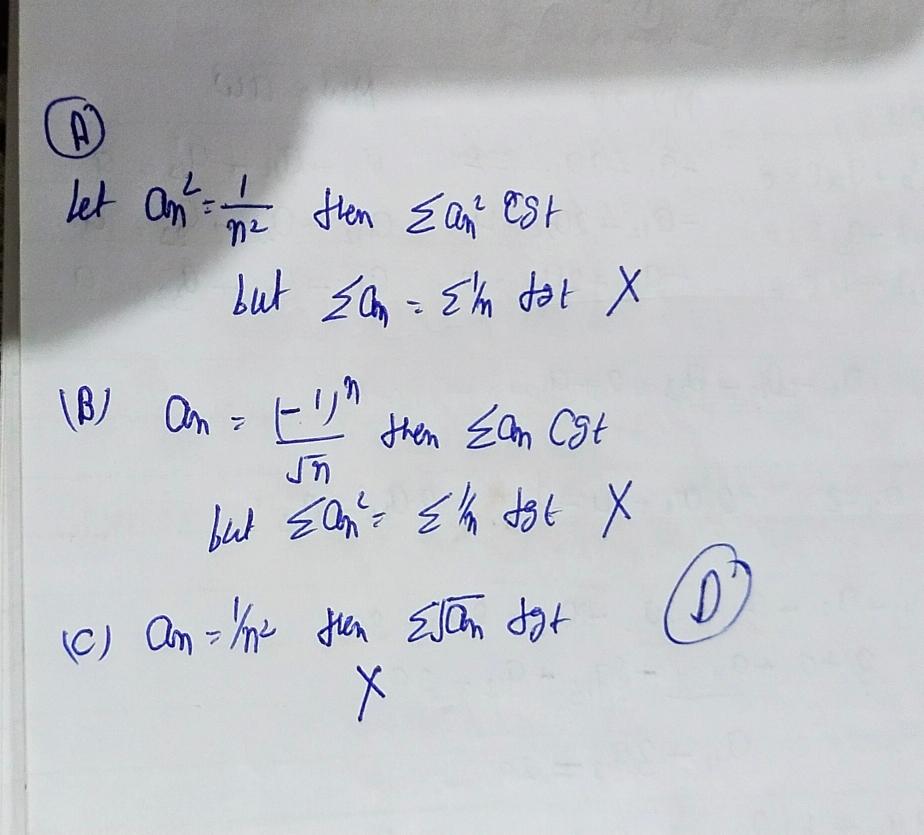 (A)
Let an² = 1/n² then Σan² Cgt
but Σan = Σ1/n dgt X
(B) an = (-1)ⁿ/√n then Σan Cgt
but Σan² = Σ1/n dgt X
(C) an = 1/n² then Σ√an dgt
X
(D)